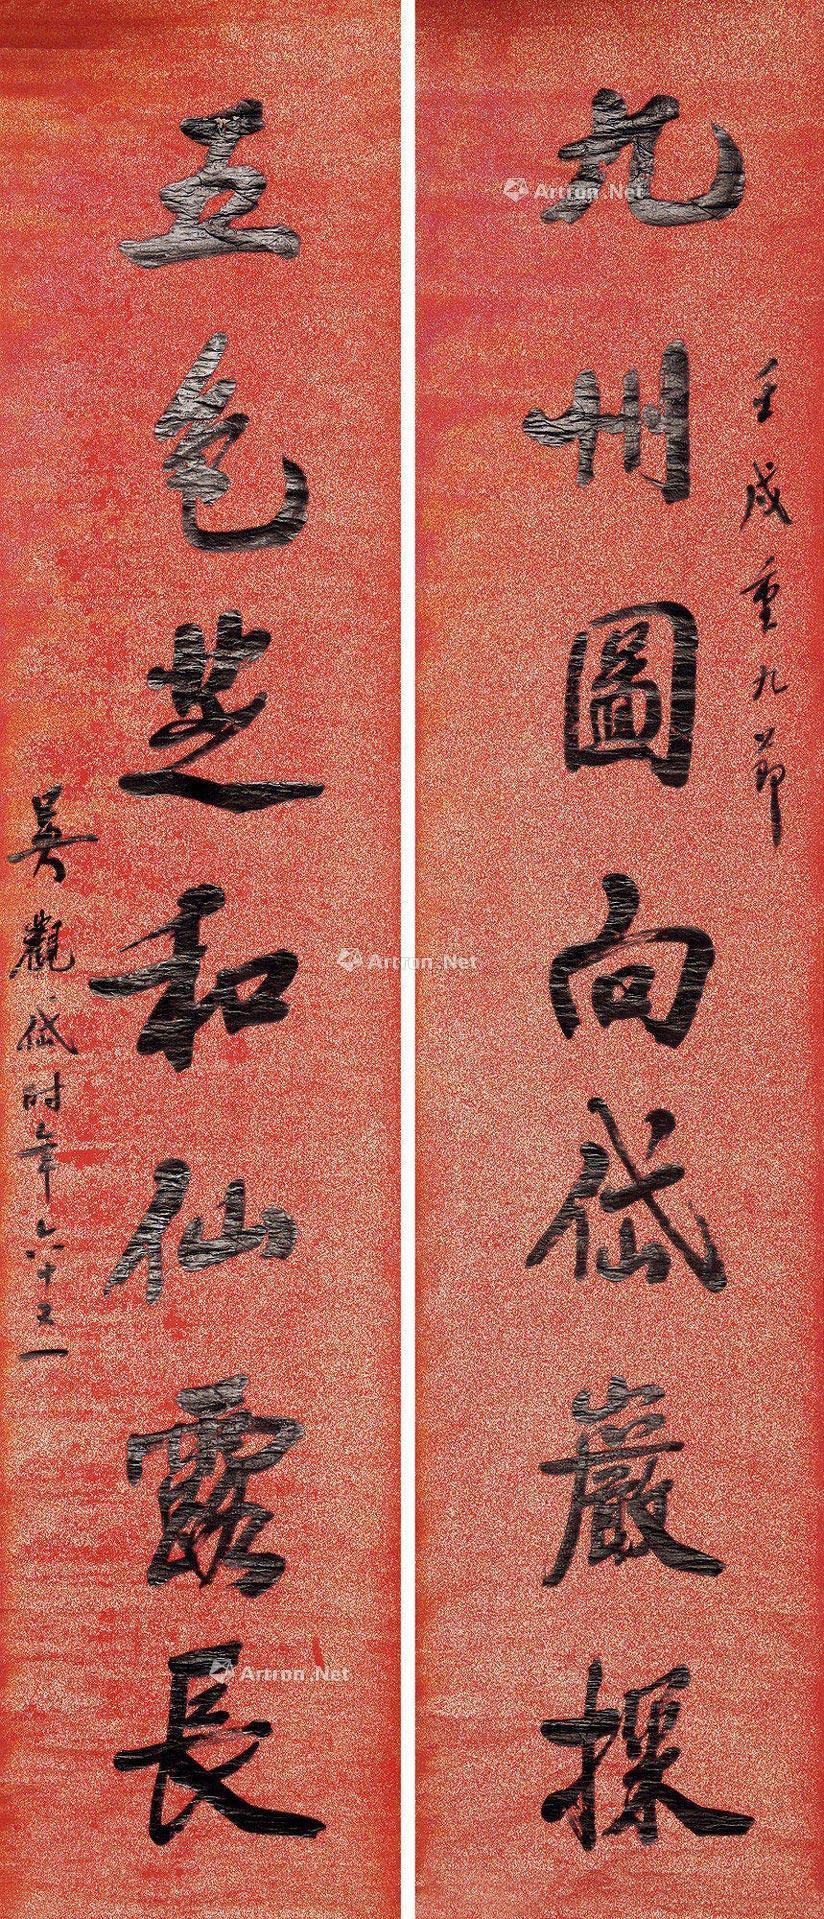 九州圖向岱巖探
壬戌重九節
五色芝和仙露長
吳觀岱時年六十又一
Artron.Net
Artron.Net
Artron.Net